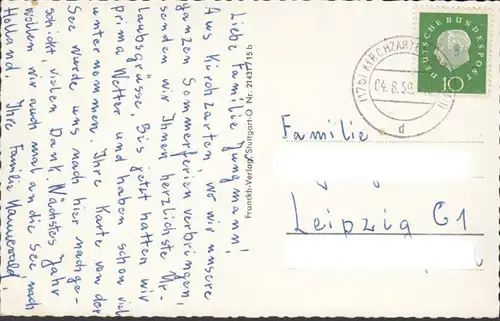 Liebe Familie Jungmann!
Aus Kirchzarten, wo wir unsere
ganzen Sommerferien verbringen,
senden wir Ihnen herzlichste Ur-
laubsgrüsse. Bis jetzt hatten wir
prima Wetter und haben schon viel
unternommen. Ihre Karte von der
See wurde uns nach hier nachge-
schickt, vielen Dank. Nächstes Jahr
wollen wir auch mal an die See, nach
Holland. Ihre Familie
Franckh-Verlag, Stuttgart-O Nr. 21437/15 b
(17b) KIRCHZARTEN
04.8.59
d
DEUTSCHE BUNDESPOST
10
Familie
Leipzig C1